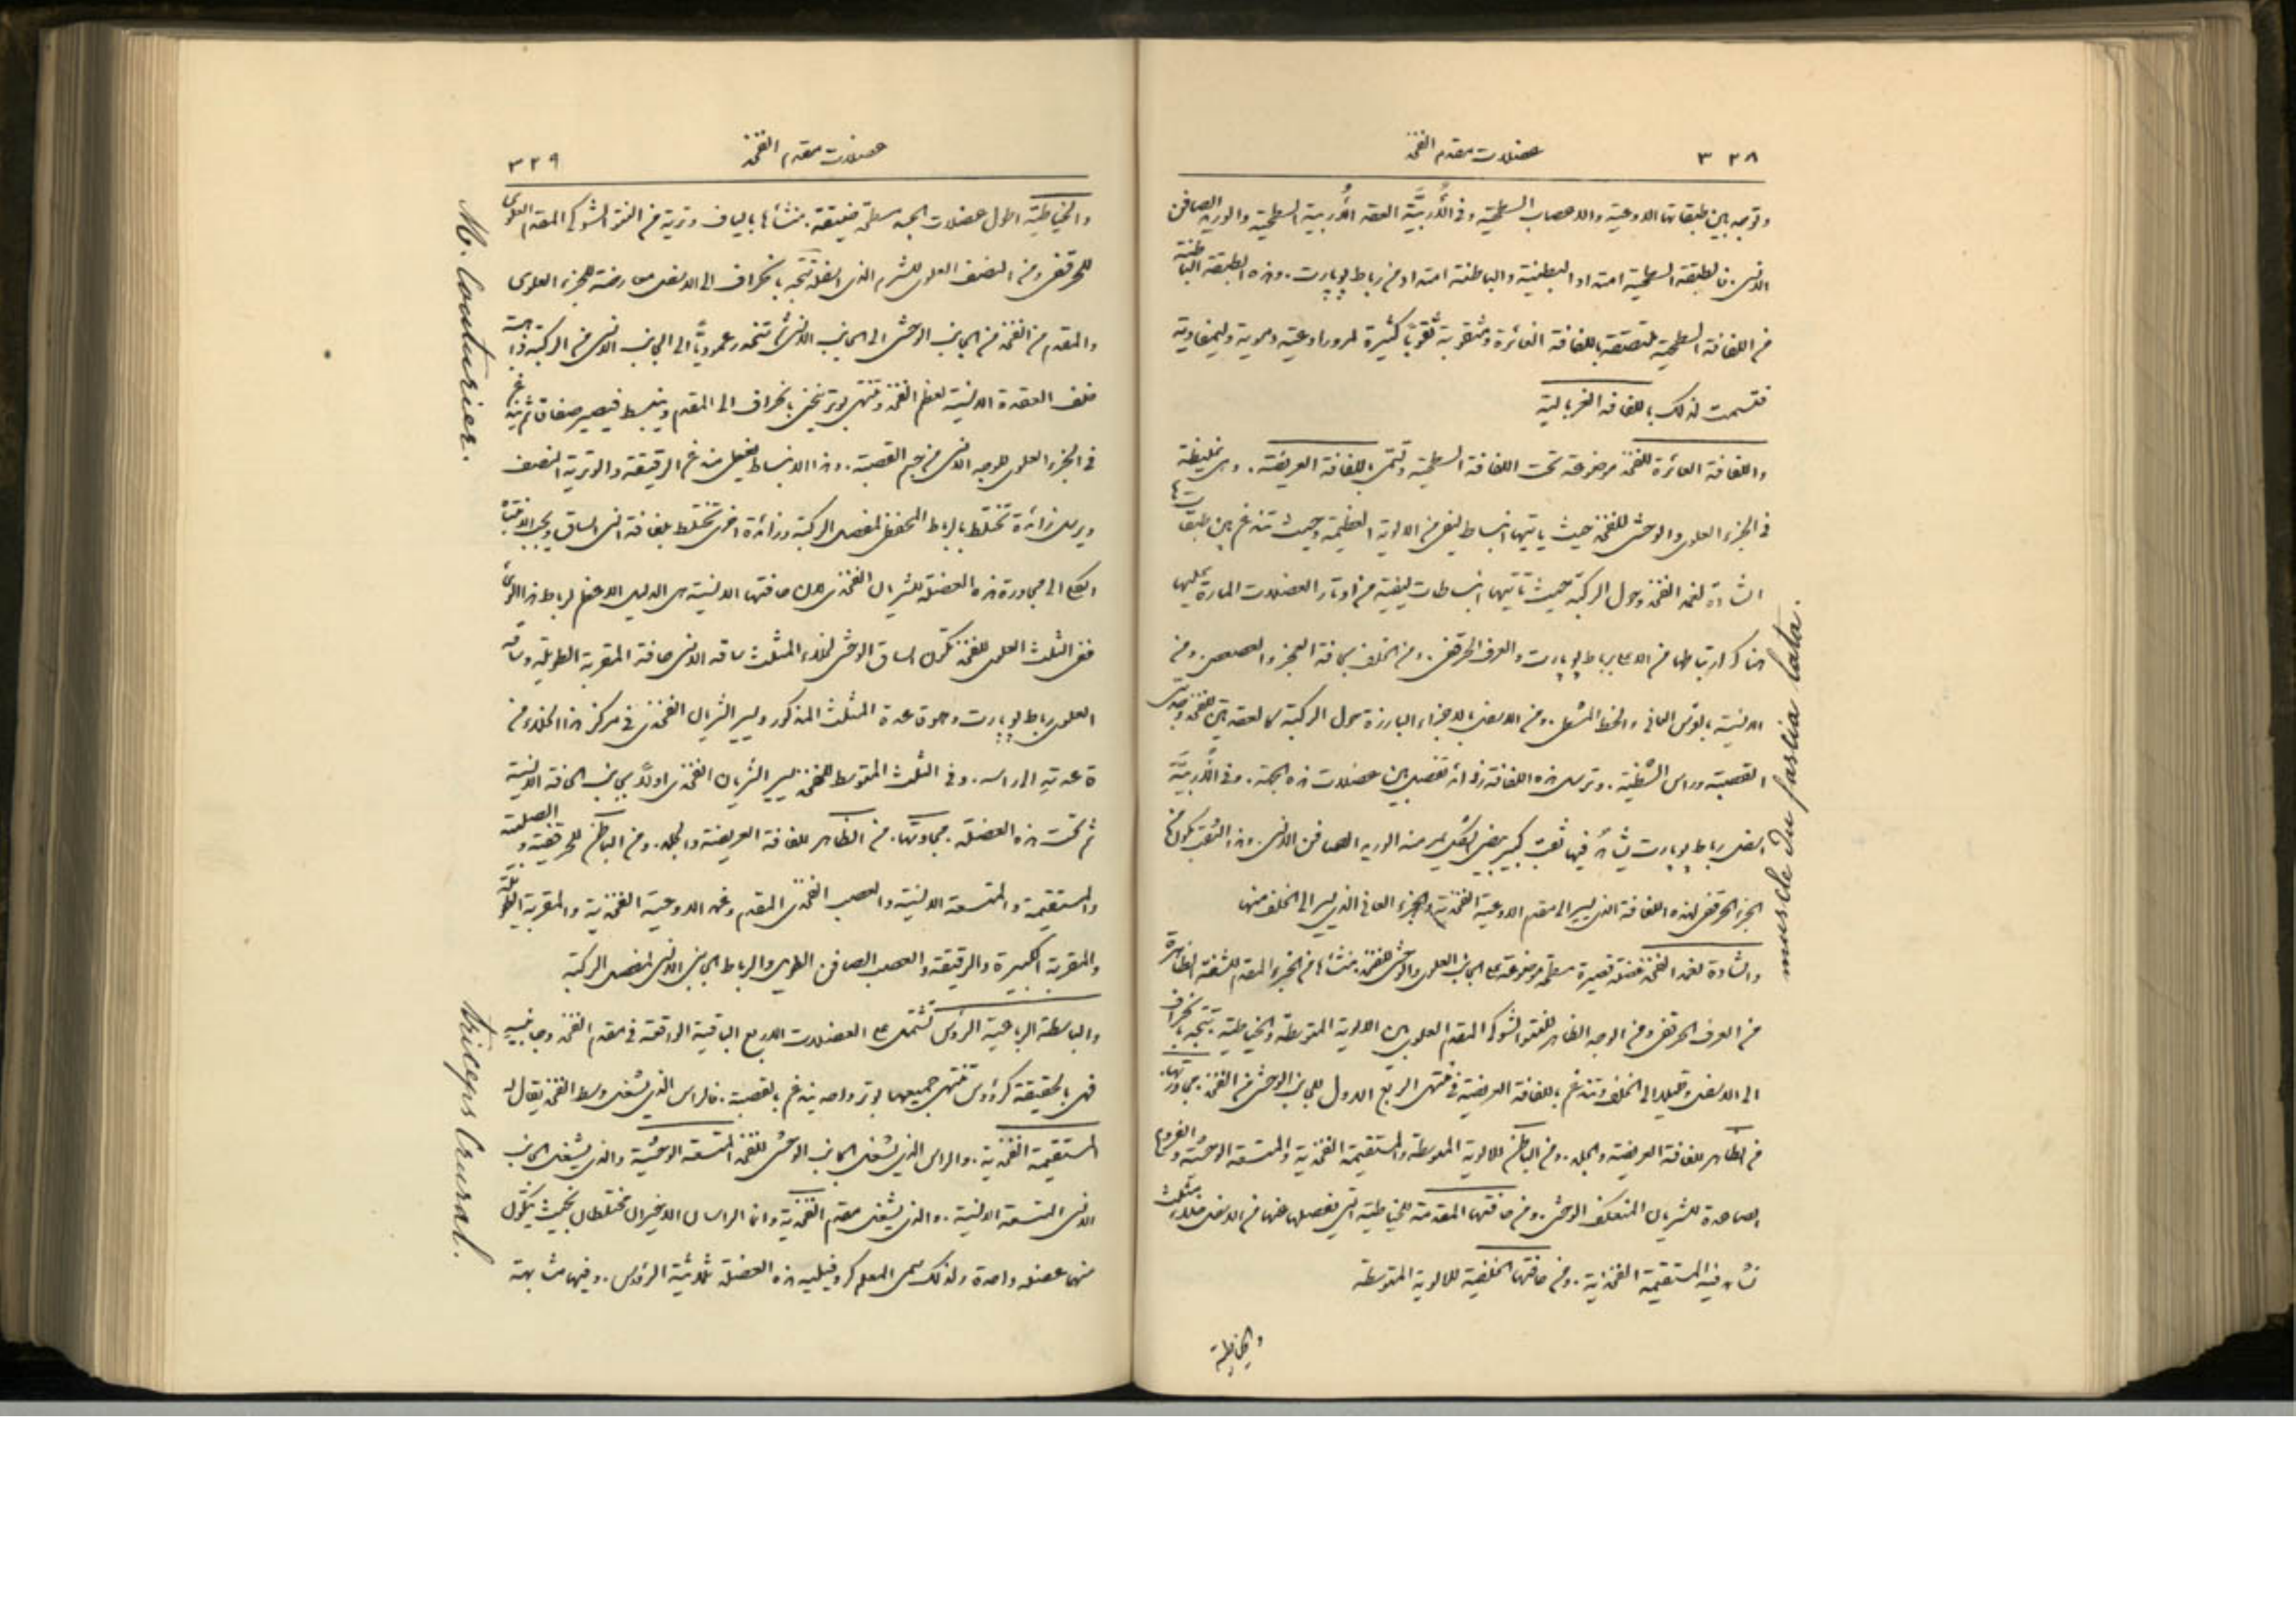 ٣٢٨
عضلات مقدم الفخذ
وتوجد بين طبقاتها الاوعية والاعصاب السطحية وفي الأُربيَّة العقد الأُربية السطحية والوريد الصافن
الانسي. فالطبقة السطحية امتداد البطنية والباطنة امتداد من رباط پوپارت. وهذه الطبقة الباطنة
من اللفافة السطحية ملتصقة باللفافة الغائرة ومثقوبة ثقوبًا كثيرة لمرور اوعية دموية وليمفاوية
فتسمت لذلك باللفافة الغربالية
واللفافة الغائرة للفخذ موضوعة تحت اللفافة السطحية وتسمى اللفافة العريضة. وهي غليظة
في الجزء العلوي والوحشي للفخذ حيث ياتيها انبساط ليفي من الالوية العظيمة وحيث تندغم بين طبقاتها
الشادة لغمد الفخذ وحول الركبة حيث تأتيها انبساطات ليفية من اوتار العضلات المارة عليها
هناك ارتباطها من الاعلى برباط پوپارت والعرف الحرقفي. ومن الخلف بحافة العجز والعصعص. ومن
الانسية بالقوس العاني والخط المشعل. ومن الاسفل بالاجزاء البارزة حول الركبة كالعقدتين للفخذ وحدبتي
القصبة وراس الشظية. وترسل هذه اللفافة زوائد تفصل بين عضلات هذه الجهة. وفي الأُربيَّة
اسفل رباط پوپارت يشاهد فيها ثقب كبير بيضي الشكل يمر منه الوريد الصافن الانسي. وهذا الثقب يكون من
الجزء الحرقفي لهذه اللفافة الذي يسير الى مقدم الاوعية الفخذية والجزء العاني الذي يسير الى الخلف منها
والشادة لغمد الفخذ عضلة قصيرة مسطحة موضوعة على الجانب العلوي والوحشي للفخذ. منشأها من الجزء المقدم للشفة الظاهرة
من العرف الحرقفي ومن الوجه الظاهر للنتوء الشوكي المقدم العلوي بين الالوية المتوسطة والخياطية. تتجه بانحراف
الى الاسفل وقليلا الى الخلف وتندغم باللفافة العريضة في منتهى الربع الاول للجانب الوحشي من الفخذ. مجاورتها.
من الظاهر للفافة العريضة والجلد. ومن الباطن للالوية المتوسطة والمستقيمة الفخذية والمتسعة الوحشية والفروع
الصاعدة للشريان المنعكف الوحشي. ومن حافتها المقدمة للخياطية التي تفصلها عنها من الاسفل خلاء مثلث
تشاهد فيه المستقيمة الفخذية. ومن حافتها الخلفية للالوية المتوسطة
والخياطية
muscle Du fascia lata.
٣٢٩
عضلات مقدم الفخذ
والخياطية اطول عضلات الجسد مسطحة ضيقة. منشأها بالياف وترية من النتوء الشوكي المقدم العلوي
للحرقفي ومن النصف العلوي للشرم الذي اسفله تتجه بانحراف الى الاسفل معارضة للجزء العلوي
والمقدم من الفخذ من الجانب الوحشي الى الجانب الانسي ثم تنحدر عموديًا الى الجانب الانسي من الركبة ذاهبة
خلف العقدة الانسية لعظم الفخذ وتنتهي بوتر ينحني بانحراف الى المقدم وينبسط فيصير صفاقًا ثم يندغم
في الجزء العلوي للوجه الانسي من جسم القصبة. وهذا الانبساط يفصل مندغم الرقيقة والوترية النصف
ويرسل زائدة تختلط بالرباط المحفظي لمفصل الركبة وزائدة اخرى تختلط بلفافة انسي الساق ويجب الانتباه
الكلي الى مجاورة هذه العضلة للشريان الفخذي لان حافتها الانسية هي الدليل الاعظم لرباط هذا الوعاء
ففي الثلث العلوي للفخذ تكون الساق الوحشي لخلاء المثلث ساقه الانسي حافة المقربة الطويلة وساقه
العلوي رباط پوپارت وهو قاعدة المثلث المذكور ويسير الشريان الفخذي في مركز هذا الخلاء من
قاعدته الى راسه. وفي الثلث المتوسط للفخذ يسير الشريان الفخذي اولاً بجانب الحافة الانسية
ثم تحت هذه العضلة. مجاورتها. من الظاهر للفافة العريضة والجلد. ومن الباطن للحرقفية والصلبية
والمستقيمة والمتسعة الانسية والعصب الفخذي المقدم وغمد الاوعية الفخذية والمقربة الطويلة
والمقربة الكبيرة والرقيقة والعصب الصافن الطويل والرباط الجانبي الانسي لمفصل الركبة
والباسطة الرباعية الرؤس تشتمل على العضلات الاربع الباقية الواقعة في مقدم الفخذ وجانبيه
فهي بالحقيقة كرؤوس تنتهي جميعها بوتر واحد يندغم بالقصبة. فالراس الذي يشغل وسط الفخذ يقال له
المستقيمة الفخذية. والراس الذي يشغل الجانب الوحشي للفخذ المتسعة الوحشية والذي يشغل الجانب
الانسي المتسعة الانسية. والذي يشغل مقدم الفخذية وانما الراسان الاخيران مختلطان بحيث يتكون
منهما عضلة واحدة ولذلك سمى المعلم كروفيليه هذه العضلة ثلاثية الرؤوس. وفيها مشابهة
M. Couturier.
triceps Crural.